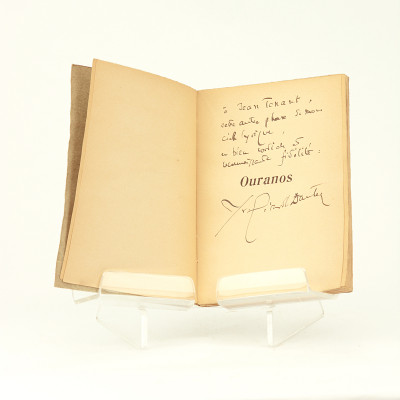 à Jean Tenant,
cette autre phase de mon
cycle lyrique,
en bien cordiale &
reconnaissante fidélité :
Ouranos